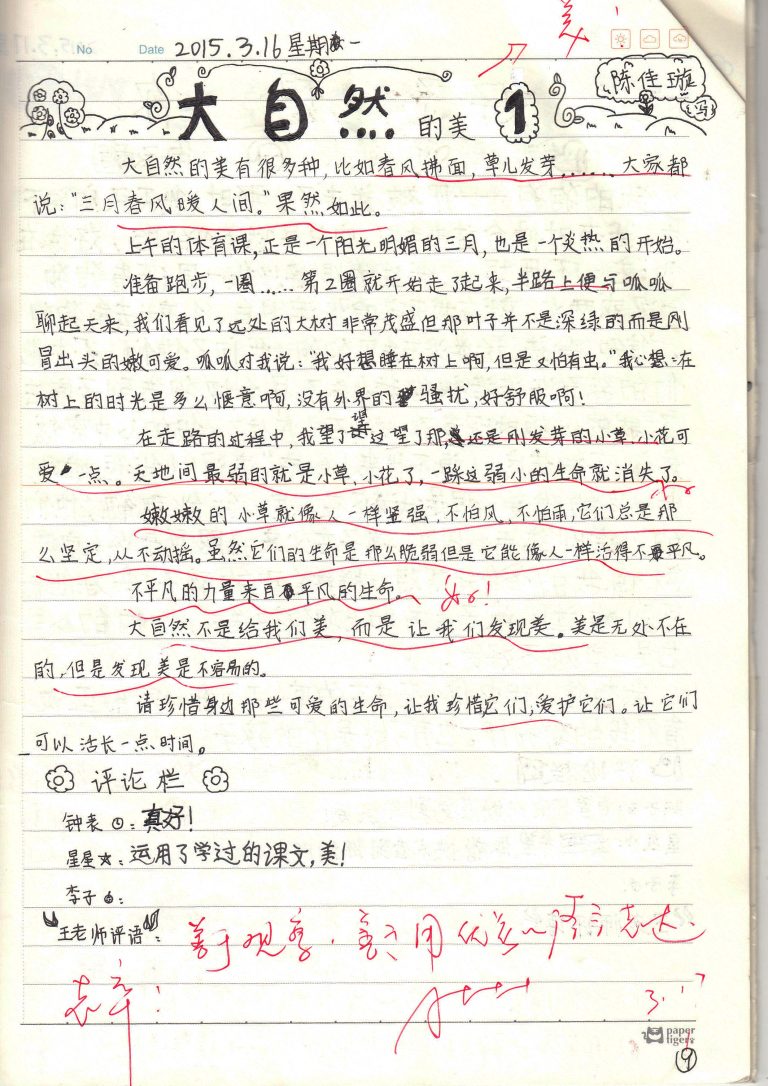 No
Date 2015.3.16 星期一
美!
大自然的美1
陈佳璇 写
大自然的美有很多种,比如春风拂面,草儿发芽……大家都
说:“三月春风暖人间。”果然如此。
上午的体育课,正是一个阳光明媚的三月,也是一个炎热的开始。
准备跑步,一圈……第2圈就开始走了起来,半路上便与呱呱
聊起天来,我们看见了远处的大树非常茂盛但那叶子并不是深绿的而是刚
冒出头的嫩可爱。呱呱对我说:“我好想睡在树上啊,但是又怕有虫。”我心想:在
树上的时光是多么惬意啊,没有外界的骚扰,好舒服啊!
在走路的过程中,我望了望这望了那,还是刚发芽的小草、小花可
爱一点。天地间最弱的就是小草、小花了,一踩这弱小的生命就消失了。
嫩嫩的小草就像人一样坚强,不怕风、不怕雨,它们总是那
么坚定,从不动摇。虽然它们的生命是那么脆弱但是它能像人一样活得不平凡。
不平凡的力量来自平凡的生命。 好!
大自然不是给我们美,而是让我们发现美。美是无处不在
的,但是发现美是不容易的。
请珍惜身边那些可爱的生命,让我珍惜它们,爱护它们。让它们
可以活长一点时间。
评论栏
钟表:真好!
星星:运用了学过的课文,美!
李子:
王老师评语:善于观察,善于用优美的语言表达。
表率!
A++++
3.17
paper tiger
19